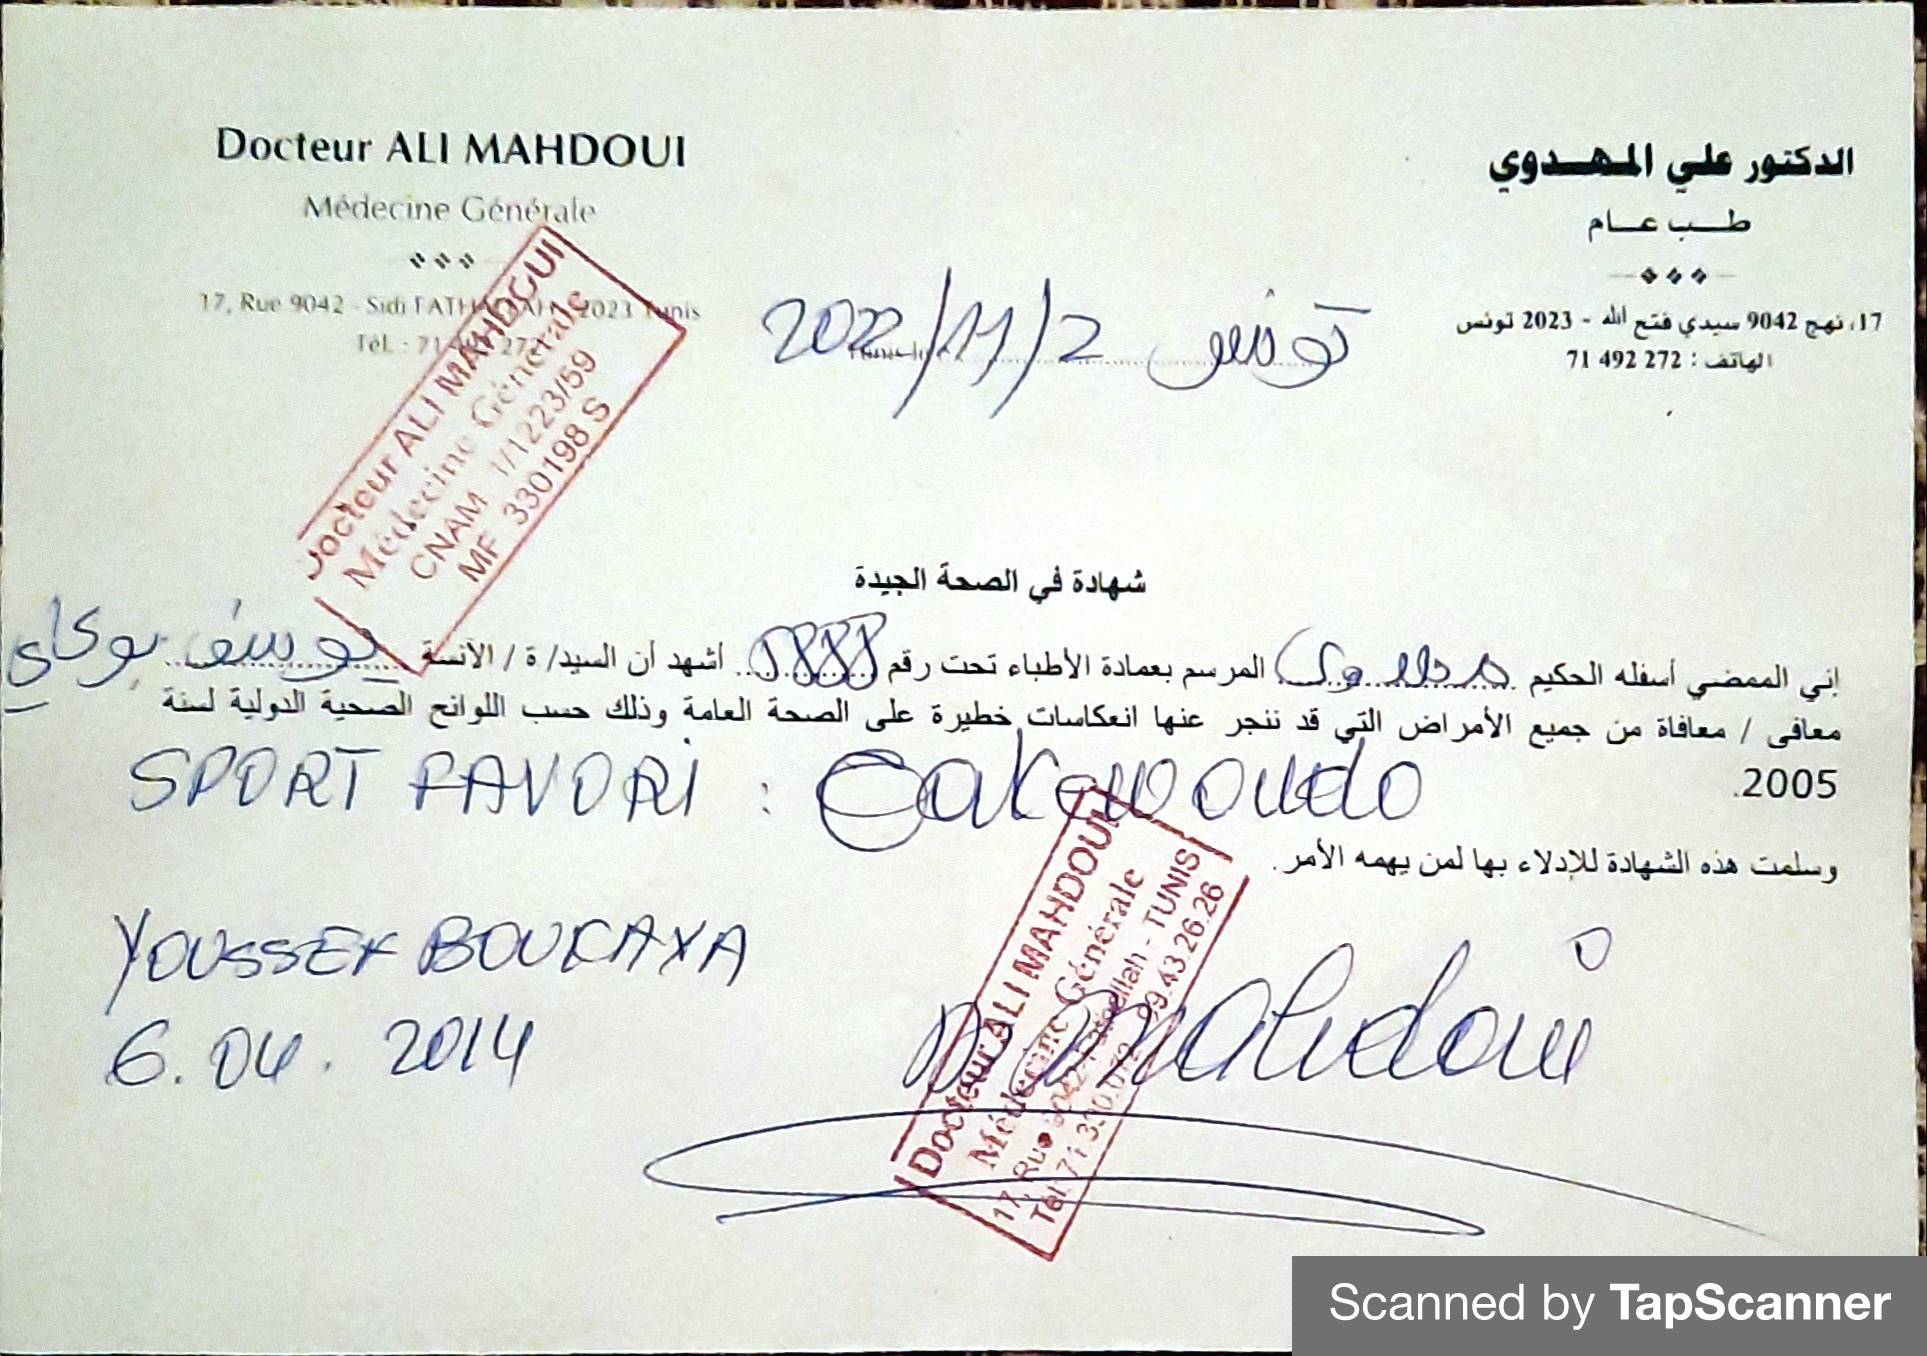 Docteur ALI MAHDOUI
Médecine Générale
17, Rue 9042 - Sidi FATHALLAH - 2023 Tunis
TéL : 71 492 272
الدكتور علي المهدوي
طب عام
17، نهج 9042 سيدي فتح الله - 2023 تونس
الهاتف : 272 492 71
تونس 2022/11/2
Docteur ALI MAHDOUI
Médecine Générale
CNAM 1/1223/59
MF 330198 S
شهادة في الصحة الجيدة
إني الممضي أسفله الحكيم المرسم بعمادة الأطباء تحت رقم أشهد أن السيد/ ة / الآنسة يوسف
معافى / معافاة من جميع الأمراض التي قد ننجر عنها انعكاسات خطيرة على الصحة العامة وذلك حسب اللوائح الصحية الدولية لسنة
2005.
SPORT FAVORI :
وسلمت هذه الشهادة للإدلاء بها لمن يهمه الأمر.
YOUSSEF
6.04.2014
Dr Mahdoui
Docteur ALI MAHDOUI
Médecine Générale
17, Rue 9042 - Fatallah - TUNIS
Tél 71.390.072 99.43.26.26
Scanned by TapScanner